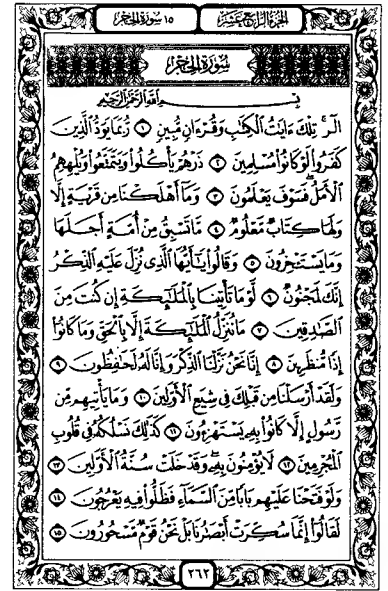 الجزء الرابع عشر
١٥ سورة الحجر
سُورَةُ الحِجْرِ
بِسْمِ ٱللَّهِ ٱلرَّحْمَٰنِ ٱلرَّحِيمِ
الٓر تِلْكَ ءَايَٰتُ ٱلْكِتَٰبِ وَقُرْءَانٍ مُّبِينٍ ١ رُّبَمَا يَوَدُّ ٱلَّذِينَ
كَفَرُوا۟ لَوْ كَانُوا۟ مُسْلِمِينَ ٢ ذَرْهُمْ يَأْكُلُوا۟ وَيَتَمَتَّعُوا۟ وَيُلْهِهِمُ
ٱلْأَمَلُ فَسَوْفَ يَعْلَمُونَ ٣ وَمَآ أَهْلَكْنَا مِن قَرْيَةٍ إِلَّا
وَلَهَا كِتَابٌ مَّعْلُومٌ ٤ مَّا تَسْبِقُ مِنْ أُمَّةٍ أَجَلَهَا
وَمَا يَسْتَـْٔخِرُونَ ٥ وَقَالُوا۟ يَٰٓأَيُّهَا ٱلَّذِى نُزِّلَ عَلَيْهِ ٱلذِّكْرُ
إِنَّكَ لَمَجْنُونٌ ٦ لَّوْ مَا تَأْتِينَا بِٱلْمَلَٰٓئِكَةِ إِن كُنتَ مِنَ
ٱلصَّٰدِقِينَ ٧ مَا نُنَزِّلُ ٱلْمَلَٰٓئِكَةَ إِلَّا بِٱلْحَقِّ وَمَا كَانُوٓا۟
إِذًا مُّنظَرِينَ ٨ إِنَّا نَحْنُ نَزَّلْنَا ٱلذِّكْرَ وَإِنَّا لَهُۥ لَحَٰفِظُونَ ٩
وَلَقَدْ أَرْسَلْنَا مِن قَبْلِكَ فِى شِيَعِ ٱلْأَوَّلِينَ ١٠ وَمَا يَأْتِيهِم مِّن
رَّسُولٍ إِلَّا كَانُوا۟ بِهِۦ يَسْتَهْزِءُونَ ١١ كَذَٰلِكَ نَسْلُكُهُۥ فِى قُلُوبِ
ٱلْمُجْرِمِينَ ١٢ لَا يُؤْمِنُونَ بِهِۦ وَقَدْ خَلَتْ سُنَّةُ ٱلْأَوَّلِينَ ١٣
وَلَوْ فَتَحْنَا عَلَيْهِم بَابًا مِّنَ ٱلسَّمَآءِ فَظَلُّوا۟ فِيهِ يَعْرُجُونَ ١٤
لَقَالُوٓا۟ إِنَّمَا سُكِّرَتْ أَبْصَٰرُنَا بَلْ نَحْنُ قَوْمٌ مَّسْحُورُونَ ١٥
٢٦٢